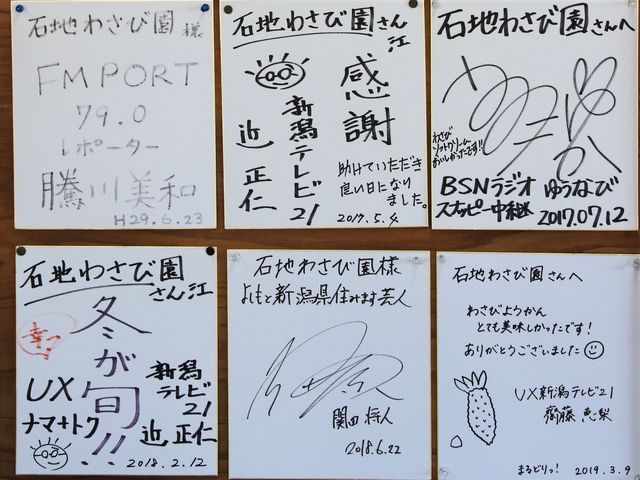 石地わさび園様
FM PORT
79.0
レポーター
騰川美和
H29.6.23
石地わさび園さん江
感謝
新潟テレビ21
近 正仁
助けていただき
良い日になり
ました。
2017.5.4
石地わさび園さんへ
わさび
ソフトクリーム
おいしかったです!!
BSNラジオ ゆうなび
スナッピー中継 2017.07.12
石地わさび園
さん江
冬が旬!!
幸っ
UX
ナマ+トク
新潟
テレビ
21
近 正仁
2018.2.12
石地わさび園様
よしもと新潟県住みます芸人
関田将人
2018.6.22
石地わさび園さんへ
わさびようかん
とても美味しかったです!
ありがとうございました
UX新潟テレビ21
齋藤 恵梨
まるどりっ! 2019.3.9